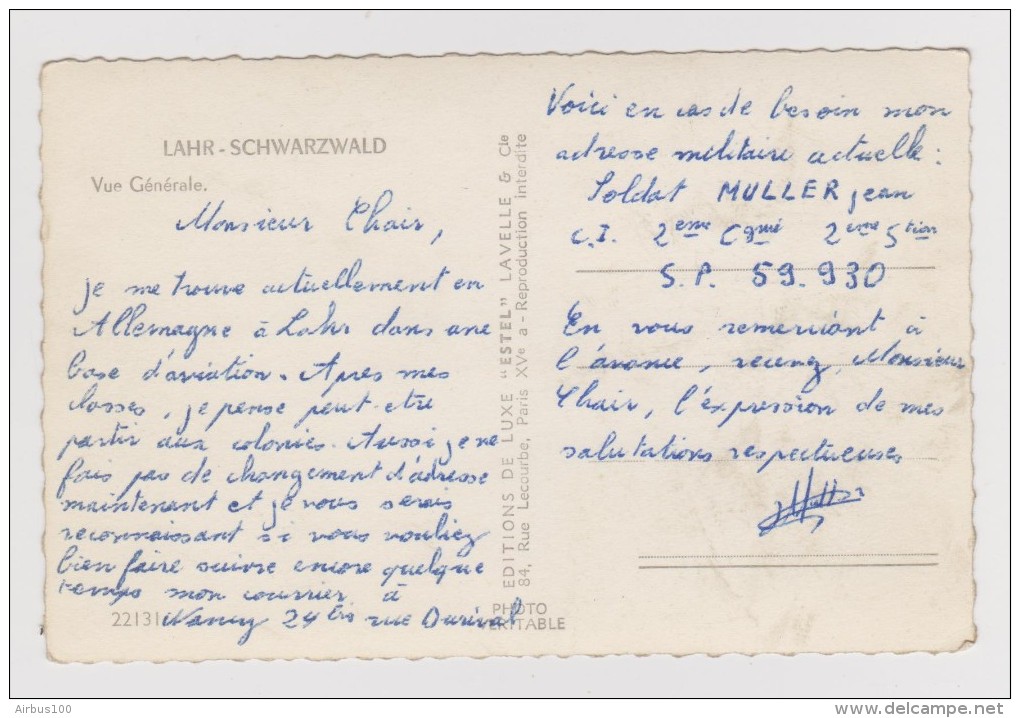 LAHR - SCHWARZWALD
Vue Générale.
Monsieur Chair,
je me trouve actuellement en
Allemagne à Lahr dans une
base d'aviation. Apres mes
classes, je pense peut-etre
partir aux colonies. Aussi je ne
fais pas de changement d'adresse
maintenant et je vous serais
reconnaissant si vous vouliez
bien faire suivre encore quelque
temps mon courrier à
Nancy 24 bis rue Durival
22131
EDITIONS DE LUXE "ESTEL" LAVELLE & Cie
84, Rue Lecourbe, Paris XVe a - Reproduction interdite
PHOTO
VERITABLE
Voici en cas de besoin mon
adresse militaire actuelle :
Soldat MULLER jean
C.I. 2eme Cgnié 2eme Stion
S.P. 59.930
En vous remerciant à
l'avance, recevez, Monsieur
Chair, l'expression de mes
salutations respectueuses
Airbus100
www.delcampe.net